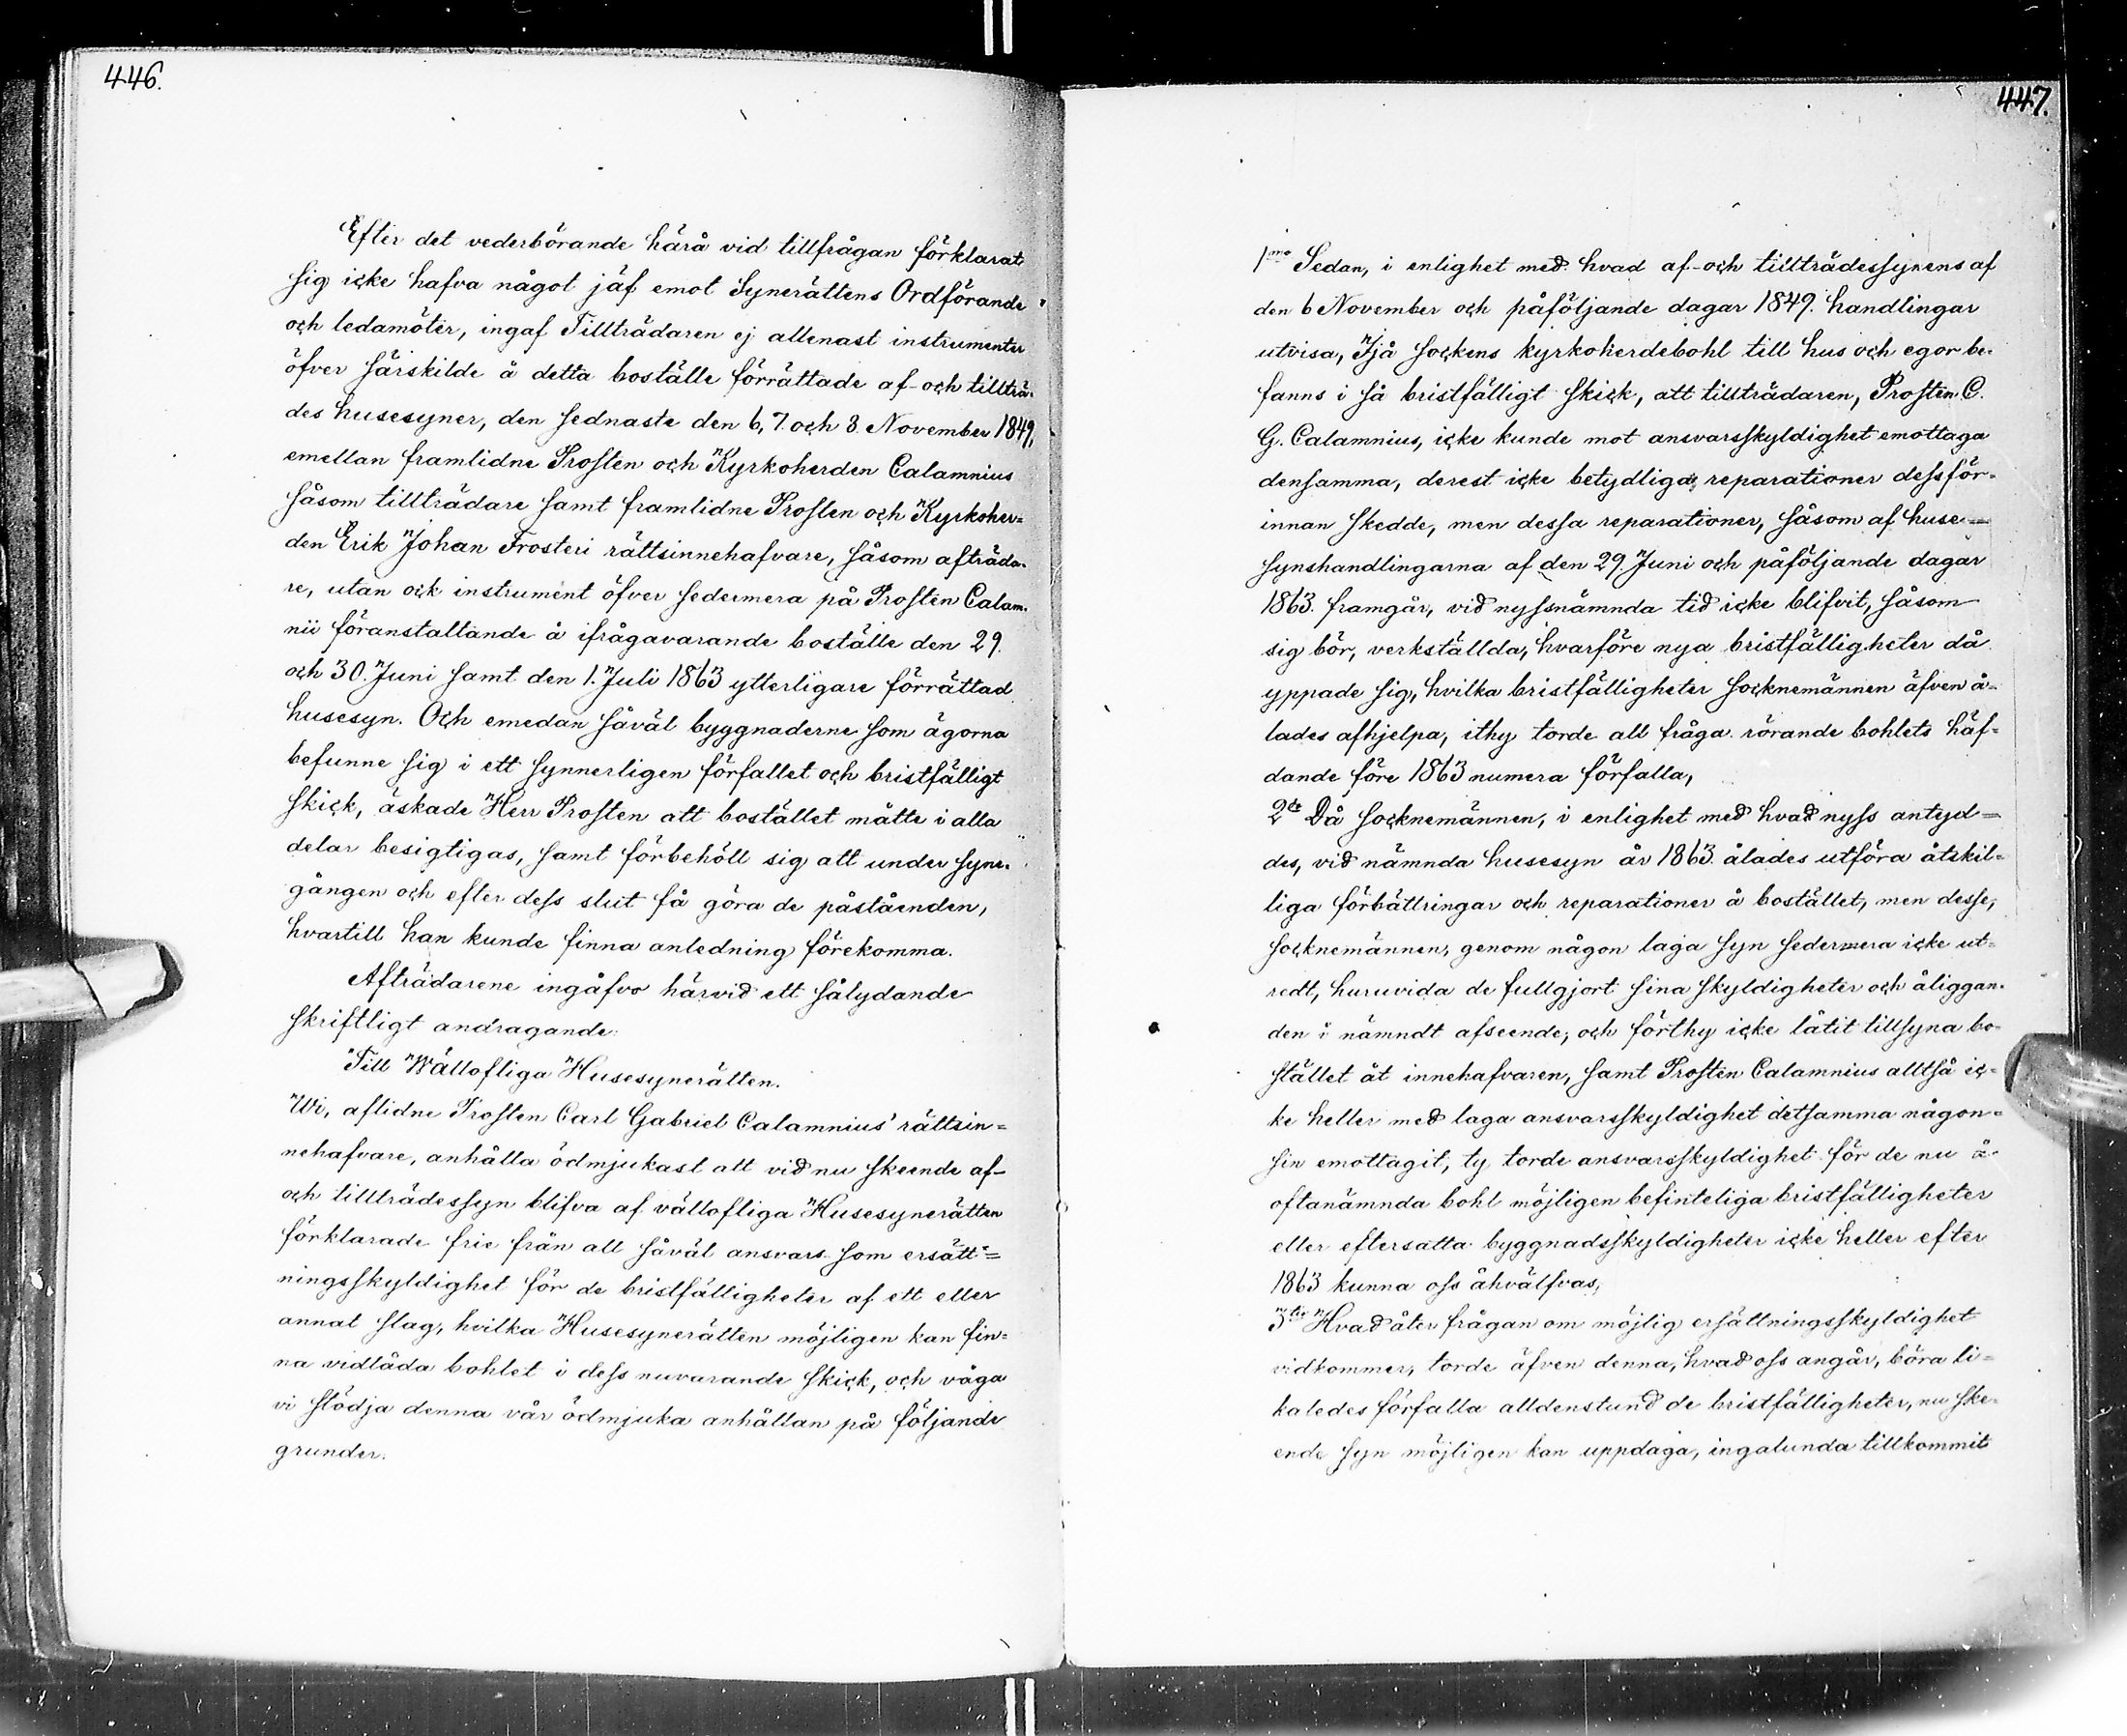 446.
Efter det vederbörande härå vid tillfrågan förklarat
sig icke hafva något jäf emot Synerättens Ordförande
och ledamöter, ingaf Tillträdaren ej allenast instrumenter
öfver särskilde å detta boställe förrättade af- och tillträ-
des husesyner, den sednaste den 6, 7. och 8. November 1849,
emellan framlidne Prosten och Kyrkoherden Calamnius
såsom tillträdare samt framlidne Prosten och Kyrkoher=
den Erik Johan Frosteri rättsinnehafvare, såsom afträda-
re, utan ock instrument öfver sedermera på Prosten Calam-
nii föranstaltande å ifrågavarande boställe den 29.
och 30. Juni samt den 1. Juli 1863 ytterligare förrättad
husesyn. Och emedan såväl byggnaderne som ägorna
befunne sig i ett synnerligen förfallet och bristfälligt
skick, äskade Herr Prosten att bostället måtte i alla
delar besigtigas, samt förbehöll sig att under syne-
gången och efter dess slut få göra de påståenden,
hvartill han kunde finna anledning förekomma.
Afträdarene ingåfvo härvid ett sålydande
skriftligt andragande:
Till Wällofliga Husesynerätten.
Wi, aflidne Prosten Carl Gabriel Calamnius' rättsin=
nehafvare, anhålla ödmjukast att vid nu skeende af-
och tillträdessyn blifva af vällofliga Husesynerätten
förklarade frie från all såväl ansvars- som ersätt=
ningsskyldighet för de bristfälligheter af ett eller
annat slag, hvilka Husesynerätten möjligen kan fin=
na vidlåda bohlet i dess nuvarande skick, och våga
vi stödja denna vår ödmjuka anhållan på följande
grunder:
447.
1mo Sedan, i enlighet med hvad af- och tillträdessynens af
den 6 November och påföljande dagar 1849. handlingar
utvisa, Ijå sockens kyrkoherdebohl till hus och egor be-
fanns i så bristfälligt skick, att tillträdaren, Prosten C.
G. Calamnius, icke kunde mot ansvarsskyldighet emottaga
densamma, derest icke betydliga reparationer dessför-
innan skedde, men dessa reparationer, såsom af huse=
synshandlingarna af den 29. Juni och påföljande dagar
1863. framgår, vid nyssnämnda tid icke blifvit, såsom
sig bör, verkställda, hvarföre nya bristfälligheter då
yppade sig, hvilka bristfälligheter socknemännen äfven å-
lades afhjelpa, ithy torde all fråga rörande bohlets häf-
dande före 1863 numera förfalla,
2do Då socknemännen, i enlighet med hvad nyss antyd=
des, vid nämnda husesyn år 1863. ålades utföra åtskil-
liga förbättringar och reparationer å bostället, men desse,
socknemännen, genom någon laga syn sedermera icke ut-
redt, huruvida de fullgjort sina skyldigheter och åliggan-
den i nämndt afseende, och förthy icke låtit tillsyna bo-
stället åt innehafvaren, samt Prosten Calamnius alltså ic-
ke heller med laga ansvarsskyldighet detsamma någon-
sin emottagit, ty torde ansvarsskyldighet för de nu å
oftanämnda bohl möjligen befinteliga bristfälligheter
eller eftersatta byggnadsskyldigheter icke heller efter
1863 kunna oss åhvälfvas,
3tio Hvad åter frågan om möjlig ersättningsskyldighet
vidkommer, torde äfven denna, hvad oss angår, böra li-
kaledes förfalla alldenstund de bristfälligheter, nu ske-
ende syn möjligen kan uppdaga, ingalunda tillkommit